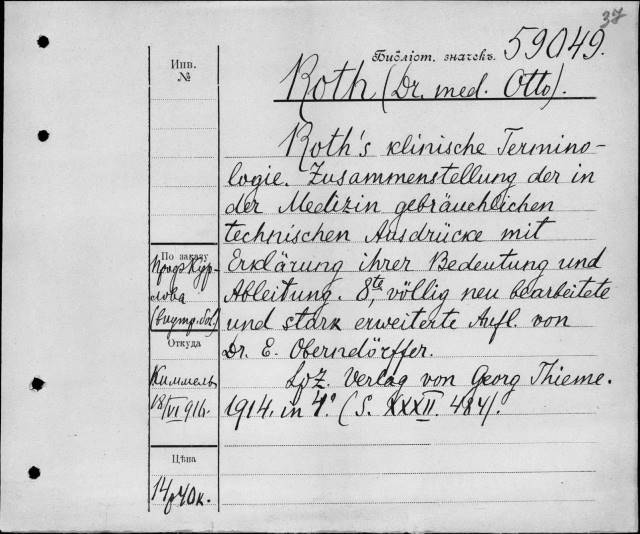 37
Библіот. значекъ. 59049.
Инв.
№
Roth (Dr. med. Otto).
Roth's klinische Termino-
logie. Zusammenstellung der in
der Medizin gebräuchlichen
technischen Ausdrücke mit
Erklärung ihrer Bedeutung und
Ableitung. 8te, völlig neu bearbeitete
und stark erweiterte Aufl. von
Dr. E. Oberndörffer.
Lpz. Verlag von Georg Thieme.
1914, in 4° (S. XXXII. 484).
По заказу
Проф Кур-
лова
(внутр. бол.)
Откуда
Киммель
18/VI 916.
Цѣна
14р 40к.